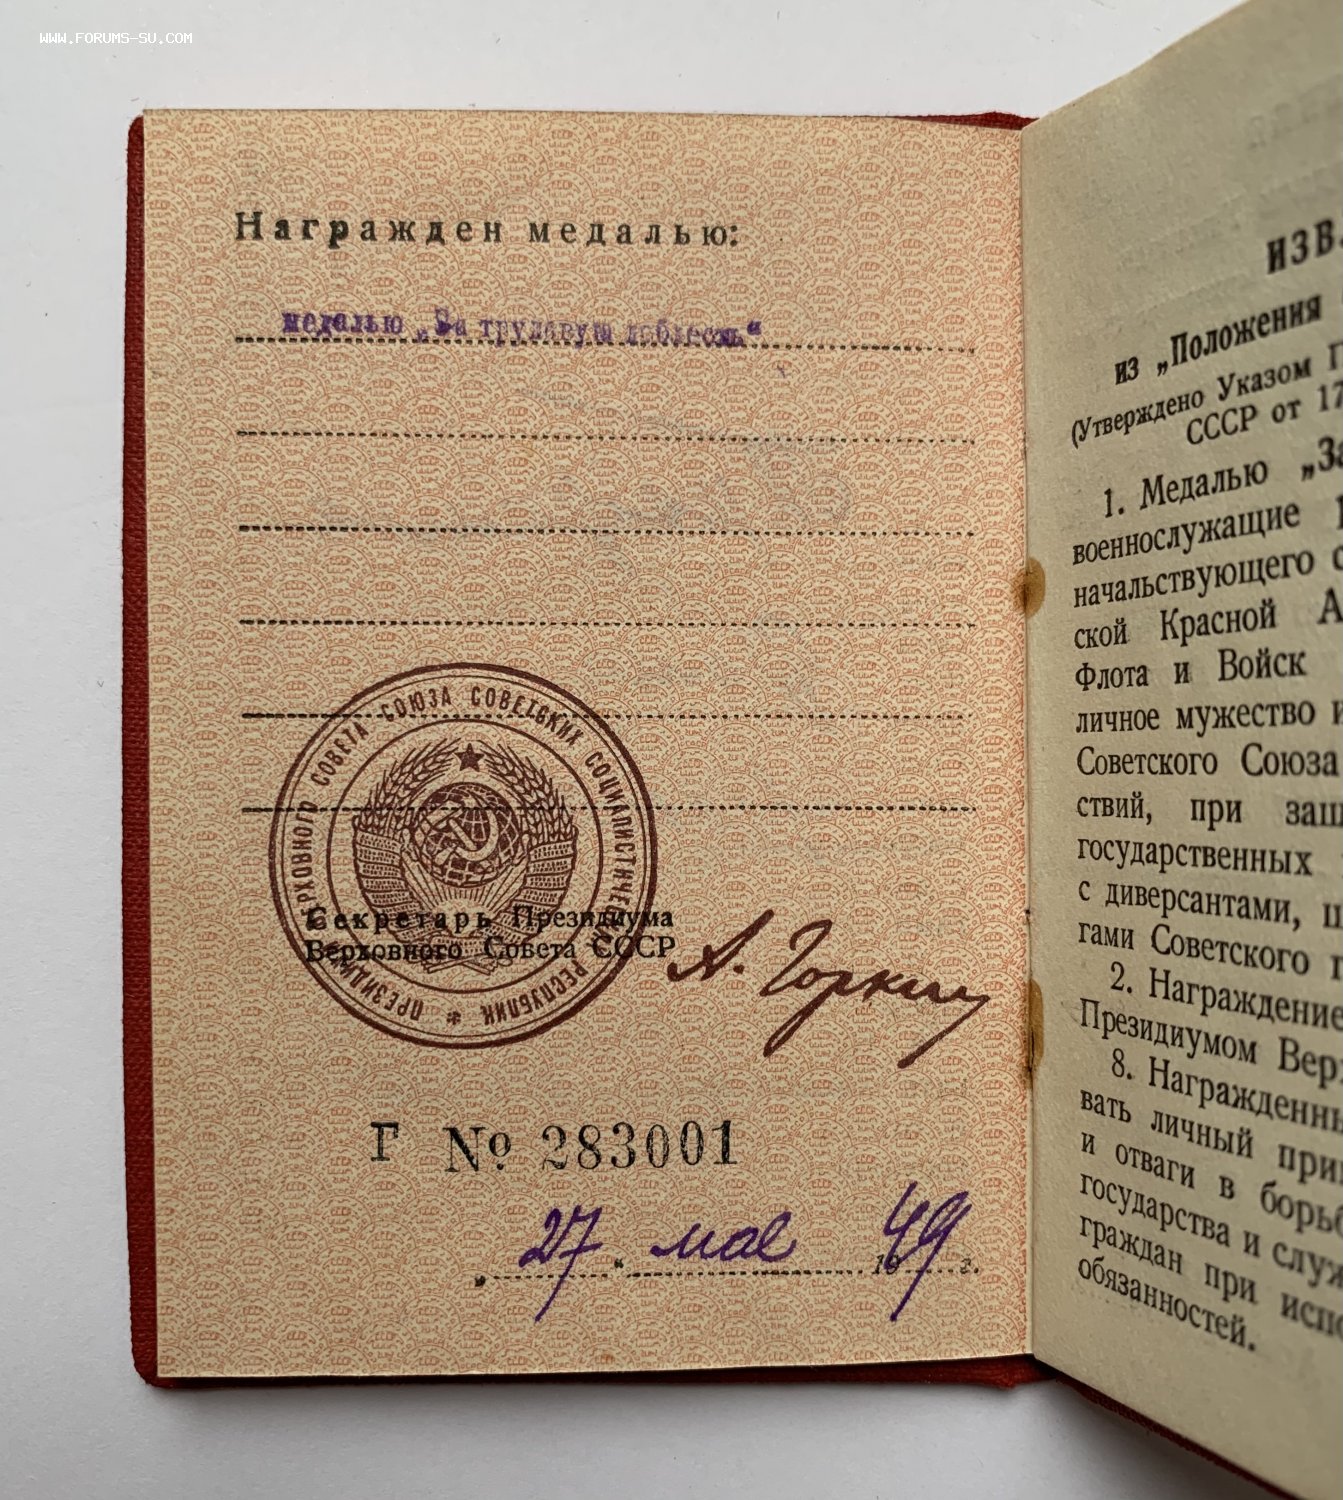 WWW.FORUMS-SU.COM
Награжден медалью:
медалью „За трудовую доблесть“
ПРЕЗИДИУМ ВЕРХОВНОГО СОВЕТА СОЮЗА СОВЕТСКИХ СОЦИАЛИСТИЧЕСКИХ РЕСПУБЛИК
Секретарь Президиума
Верховного Совета СССР
А. Горкин
Г № 283001
„27“ мая 1949 г.
из „Положения
(Утверждено Указом
СССР от 17
1. Медалью „За
военнослужащие
начальствующего
ской Красной
Флота и Войск
личное мужество и
Советского Союза
ствий, при
государственных
с диверсантами,
гами Советского
2. Награждение
Президиумом
8.
вать личный
и отваги в
государства и
граждан при
обязанностей.